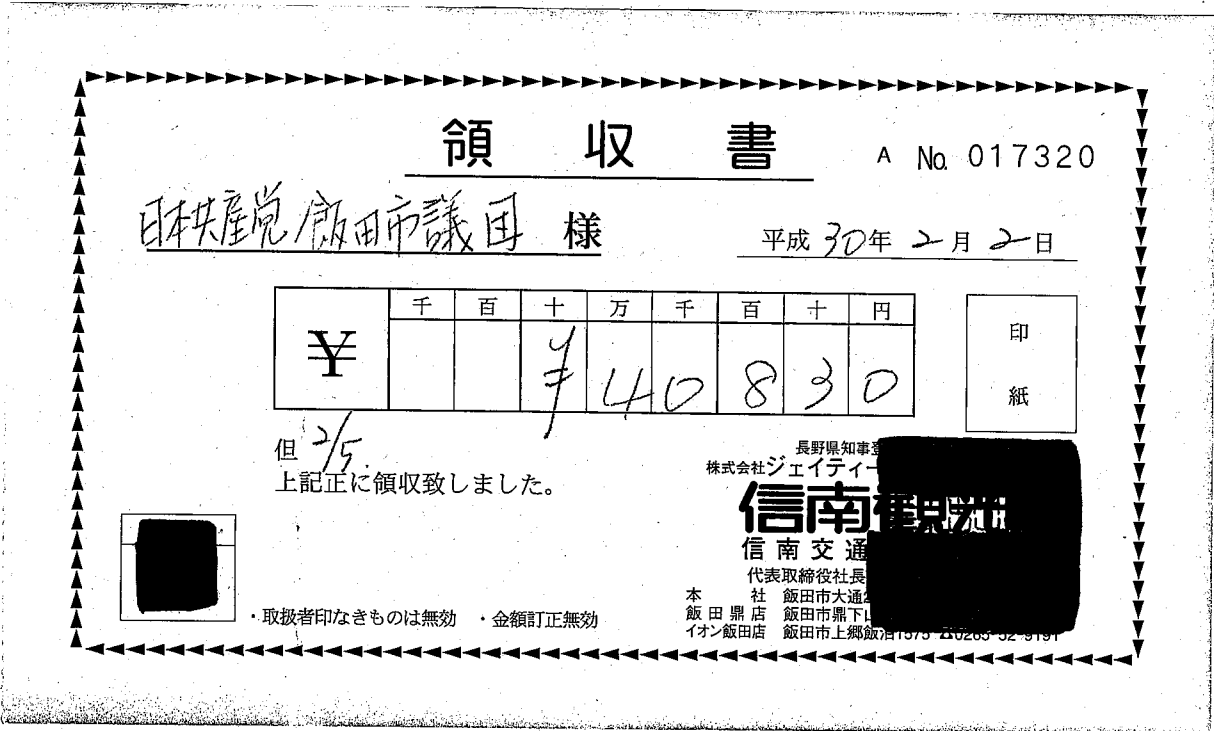 領収書
A No. 017320
日本共産党飯田市議団 様
平成30年2月2日
千 百 十 万 千 百 十 円
¥ ¥ 4 0 8 3 0
印紙
但 2/5.
上記正に領収致しました。
長野県知事登
株式会社ジェイティー
信南観光
信南交通
代表取締役社長
本社 飯田市大通2
飯田鼎店 飯田市鼎下山
イオン飯田店 飯田市上郷飯沼1575 ☎0265-52-9191
・取扱者印なきものは無効 ・金額訂正無効